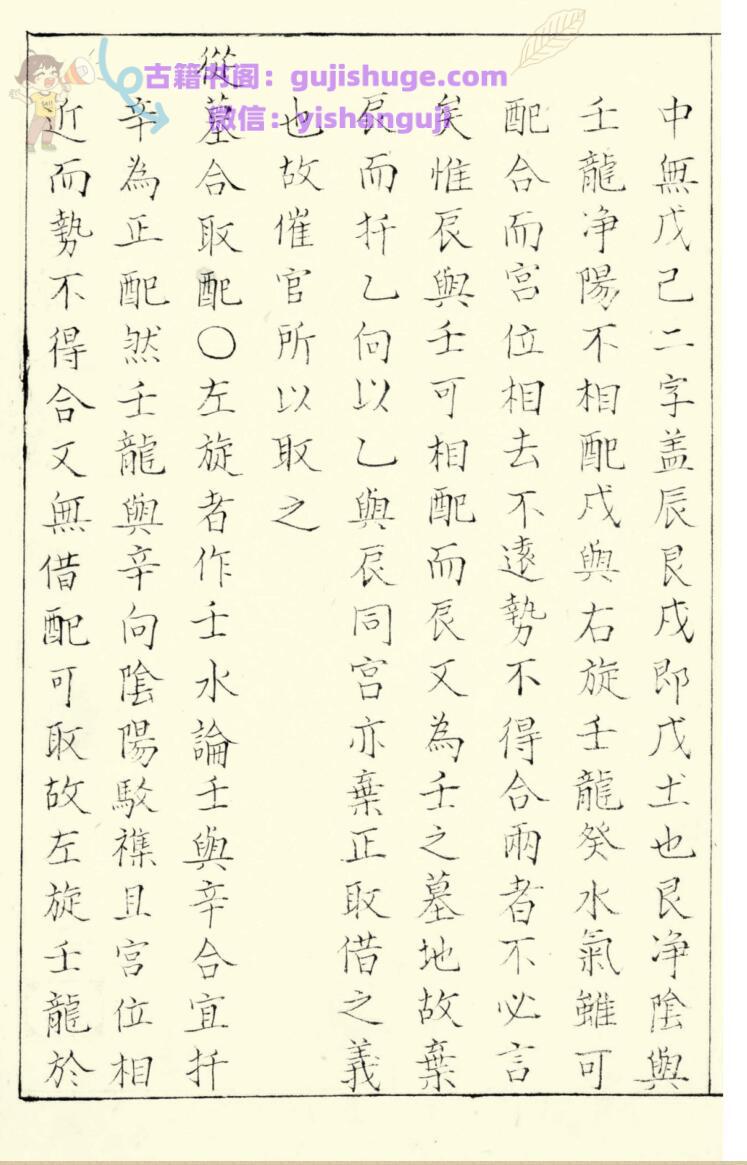 古籍书阁：gujishuge.com
微信：yishanguji
中無戊己二字盖辰艮戌即戊土也艮净陰與
壬龍净陽不相配戌與右旋壬龍癸水氣雖可
配合而宫位相去不遠勢不得合兩者不必言
矣惟辰與壬可相配而辰又為壬之墓地故棄
辰而扦乙向以乙與辰同宫亦棄正取借之義
也故催官所以取之
從墓合取配〇左旋者作壬水論壬與辛合宜扦
辛為正配然壬龍與辛向陰陽駁襍且宫位相
近而勢不得合又無借配可取故左旋壬龍於